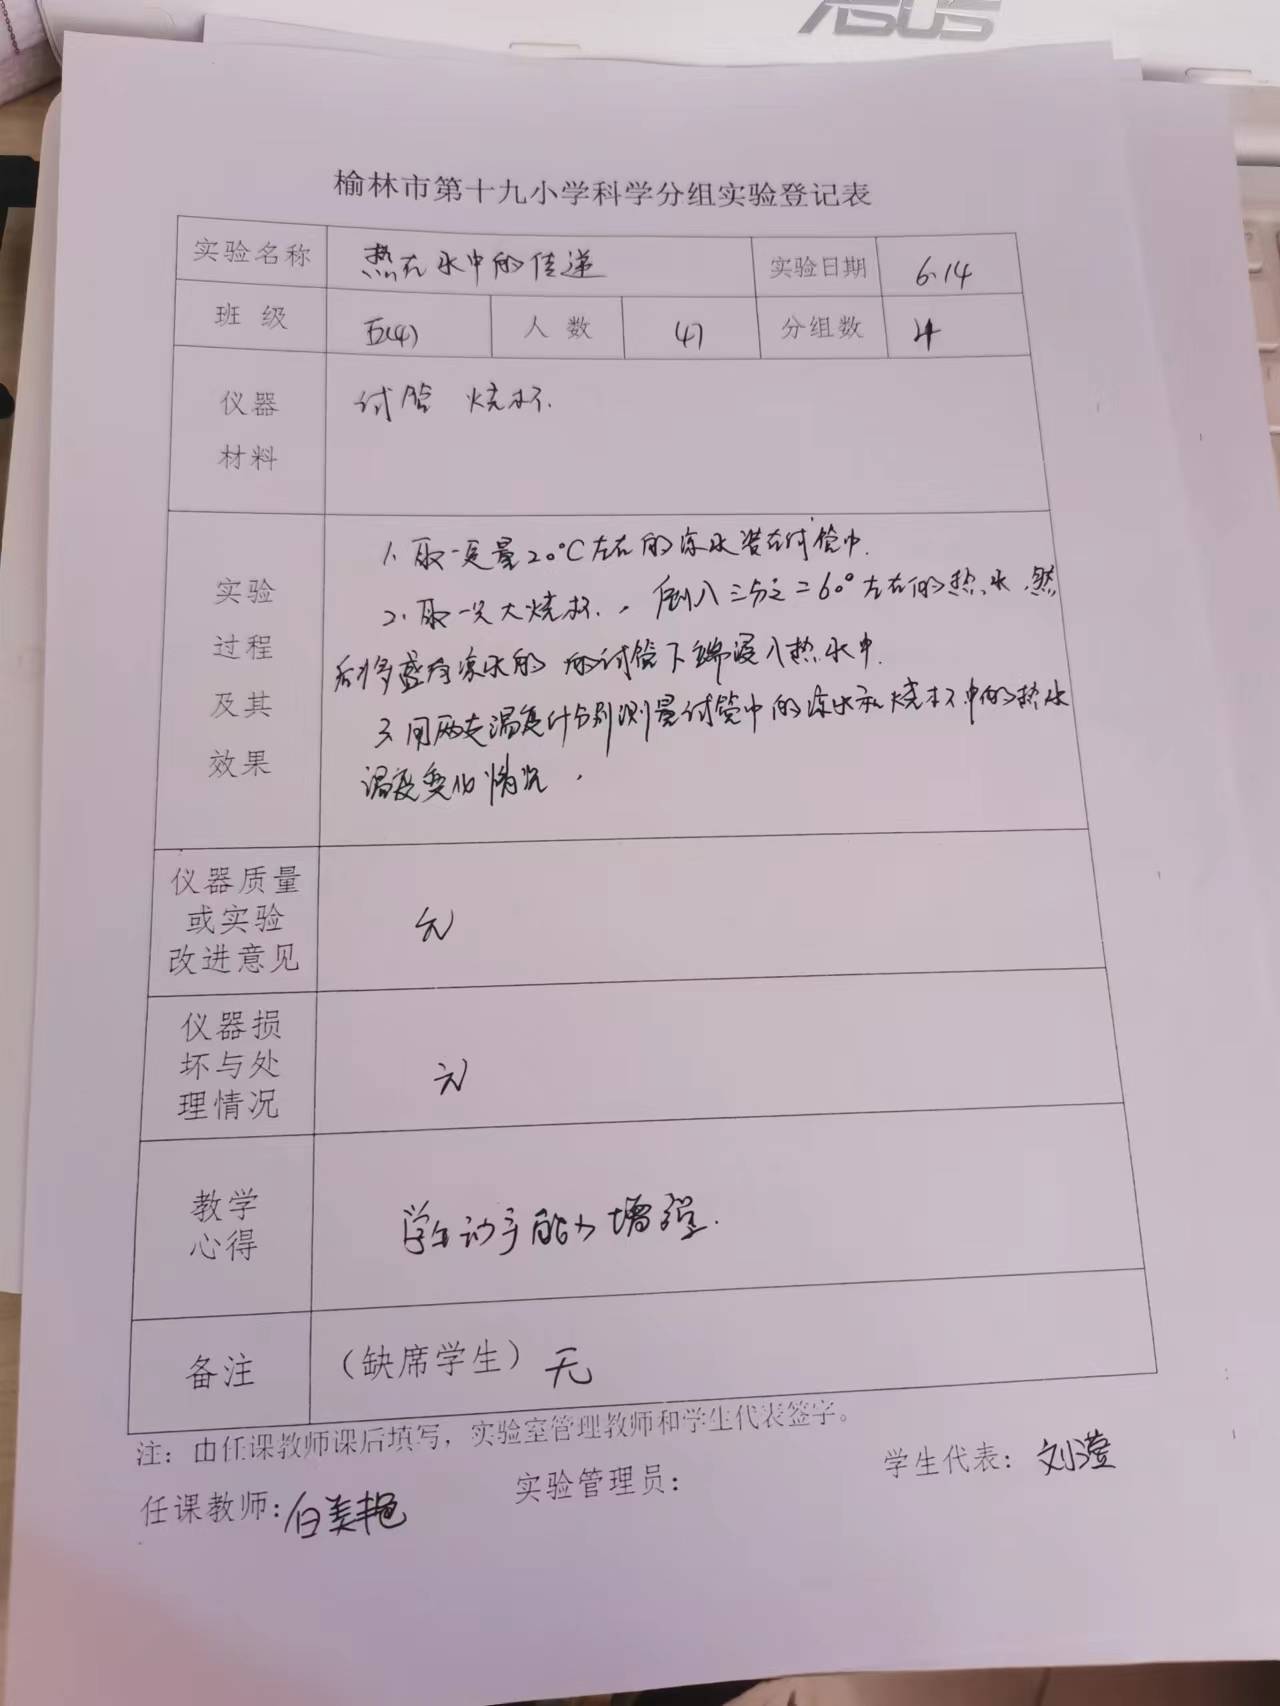 ASUS
榆林市第十九小学科学分组实验登记表
实验名称 热在水中的传递 实验日期 6.14
班级 五(4) 人数 41 分组数 4
仪器 试管 烧杯.
材料
1. 取一定量20°C左右的凉水装在试管中.
实验
2. 取一只大烧杯., 倒入三分之二60°左右的热水.然
过程
后将盛有凉水的 的试管下端浸入热水中.
及其
3. 用两支温度计分别测量试管中的凉水和烧杯中的热水
效果
温度变化情况.
仪器质量
或实验 无
改进意见
仪器损
坏与处 无
理情况
教学 学生动手能力增强.
心得
备注 （缺席学生）无
注：由任课教师课后填写，实验室管理教师和学生代表签字。
任课教师：白美艳 实验管理员： 学生代表：刘滢